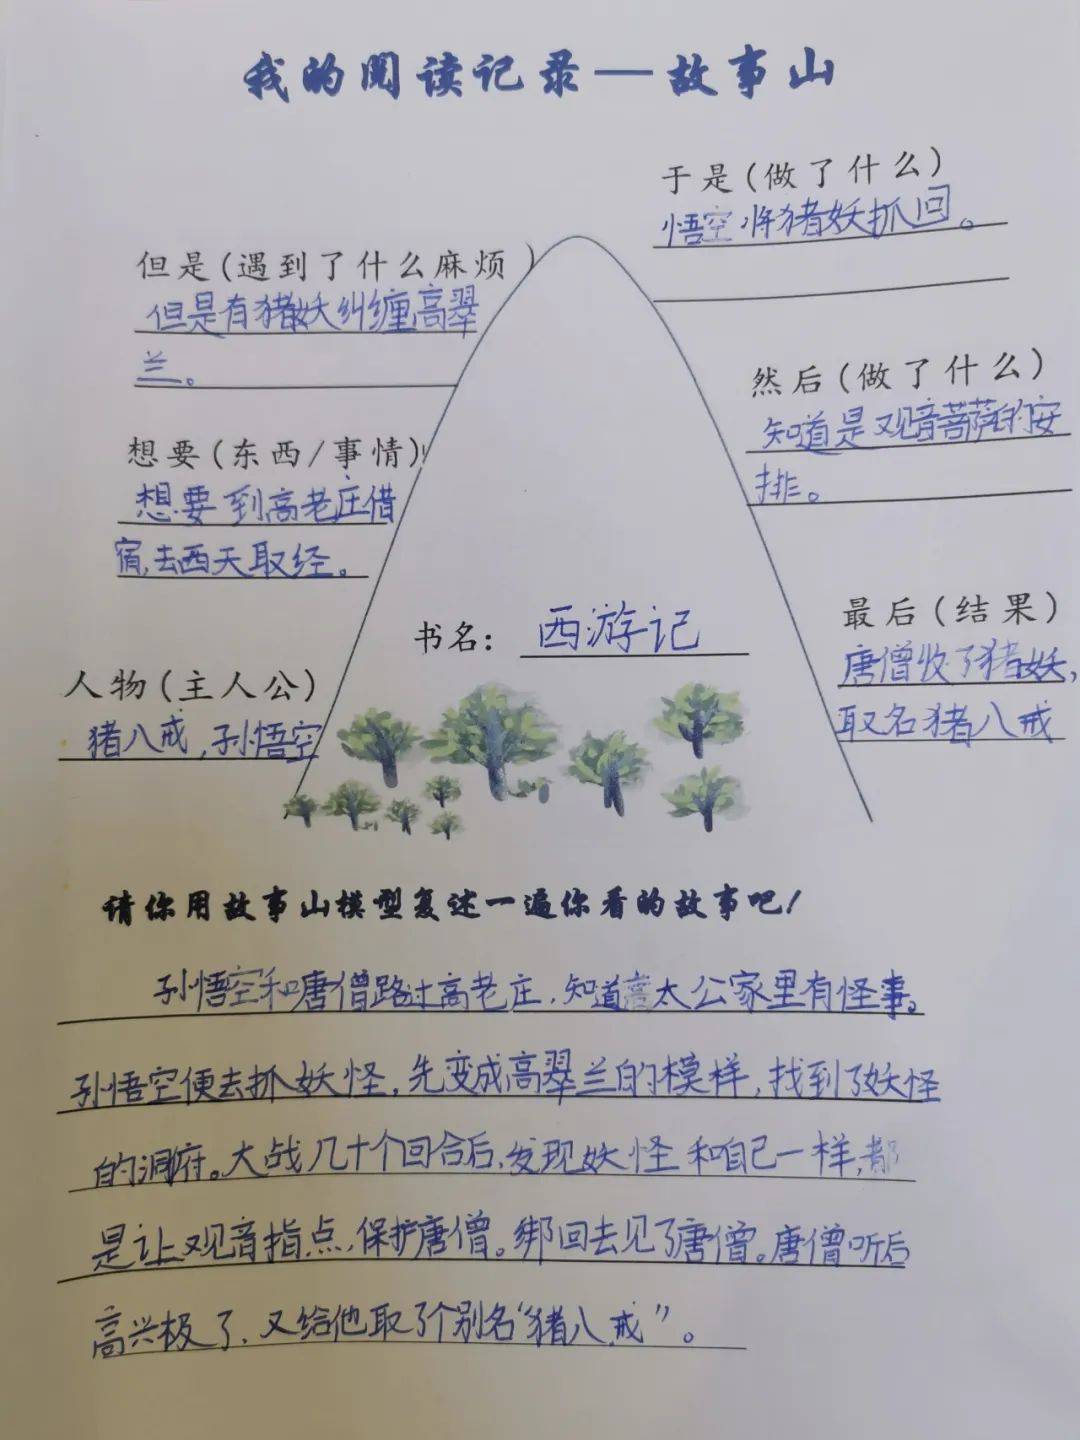 我的阅读记录—故事山
于是(做了什么)
悟空将猪妖抓回。
但是(遇到了什么麻烦)
但是有猪妖纠缠高翠
兰。
然后(做了什么)
知道是观音菩萨的安
排。
想要(东西/事情)
想要到高老庄借
宿,去西天取经。
最后(结果)
唐僧收了猪妖,
取名猪八戒
书名: 西游记
人物(主人公)
猪八戒,孙悟空
请你用故事山模型复述一遍你看的故事吧!
孙悟空和唐僧路过高老庄,知道高太公家里有怪事。
孙悟空便去抓妖怪,先变成高翠兰的模样,找到了妖怪
的洞府。大战几十个回合后,发现妖怪和自己一样,都
是让观音指点,保护唐僧。绑回去见了唐僧。唐僧听后
高兴极了,又给他取了个别名“猪八戒”。